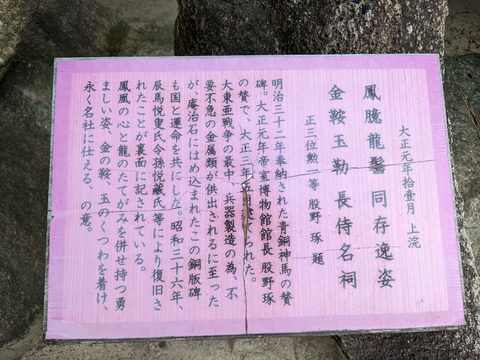 大正元年拾壹月 上浣
鳳臆龍鬐 同存逸姿
金鞍玉勒 長侍名祠
正三位勲一等 股野 琢 題
明治三十二年奉納された青銅神馬の賛
碑。大正元年帝室博物館館長 股野琢
の賛で、大正三年 られた。
大東亜戦争の最中、兵器製造の為、不
要不急の金属類が供出されるに至った
が、庵治石にはめ込まれたこの銅版碑
も国と運命を共にした。昭和三十六年、
辰馬悦叟氏令孫悦蔵氏等により復旧さ
れたことが裏面に記されている。
鳳凰の心と龍のたてがみを併せ持つ勇
ましい姿、金の鞍、玉のくつわを着け、
永く名社に仕える、の意。